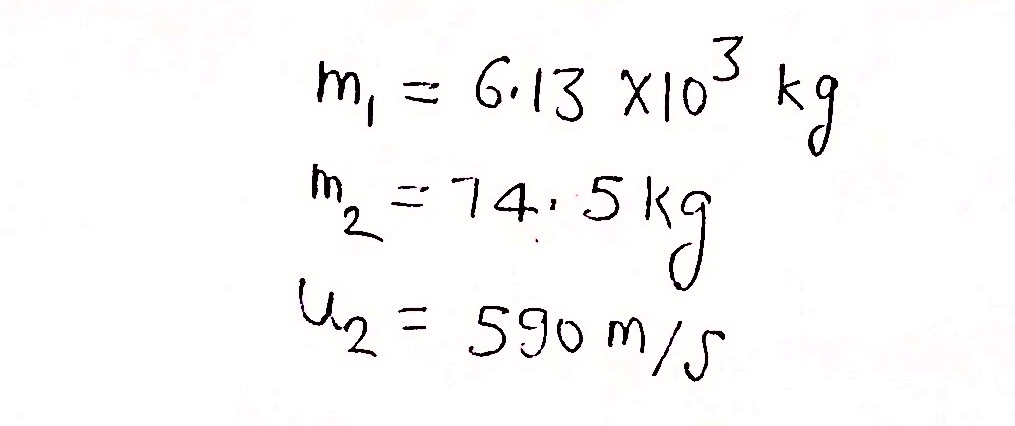 m₁ = 6.13 ×10³ kg
m₂ = 74.5 kg
u₂ = 590 m/s